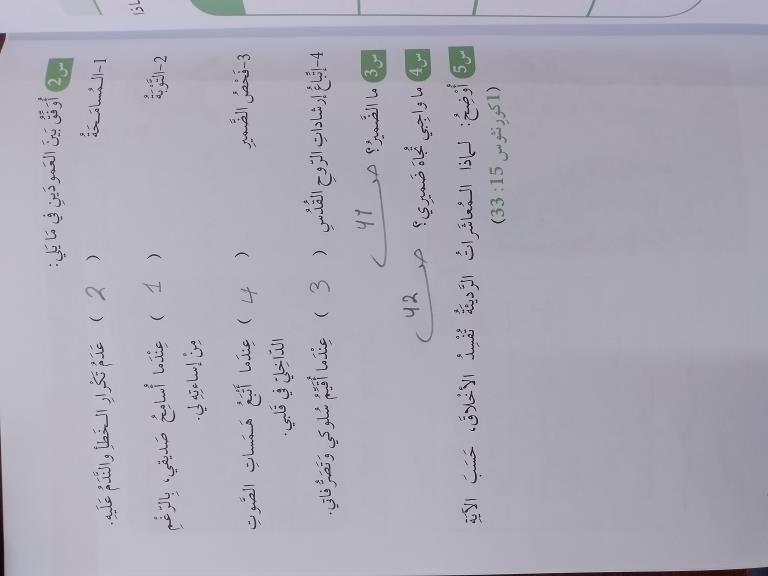 ماذا
س2 أُوَفِّقُ بَيْنَ العَمودَيْنِ في مَا يَلي:
1-المُسامَحَةُ ( 2 ) عَدَمُ تَكْرارِ الخَطَأِ والنَّدَمُ عَلَيْهِ.
2-التَّوْبَةُ ( 1 ) عِنْدَما أُسامِحُ صَديقي، بِالرَّغْمِ
مِنْ إساءَتِهِ لي.
3-فَحْصُ الضَّميرِ ( 4 ) عِنْدَما أَتْبَعُ هَمَساتِ الصَّوْتِ
الدّاخِلِيِّ في قَلْبي.
4-إتِّباعُ إرشاداتِ الرّوحِ القُدُسِ ( 3 ) عِنْدَما أُقَيِّمُ سُلوكي وَتَصَرُّفاتي.
س3 ما الضَّميرُ؟ ص 41
س4 ما واجِبي تُجاهَ ضَميري؟ ص 42
س5 أُوْضِحُ: لماذا المُعاشَراتُ الرَّديئَةُ تُفْسِدُ الأَخْلاقَ، حَسَبَ الآيَةِ
(1كورنثوس 15: 33)